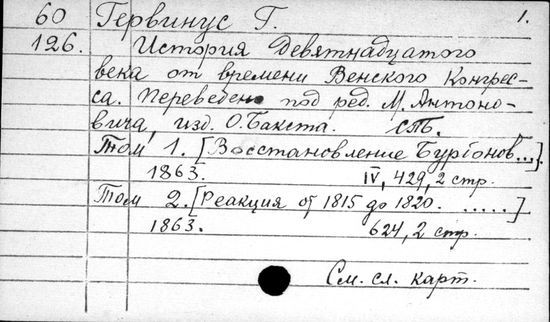 60 Гервинус Г. 1.
126. История Девятнадцатого
века от времени Венского Конгрес-
са. Переведено под ред. М. Антоно-
вича, изд. О. Бакста. СПБ.
Том 1. [Восстановление Бурбонов...].
1863. IV, 429, 2 стр.
Том 2. [Реакция от 1815 до 1820. .....]
1863. 624, 2 стр.
См. сл. карт.